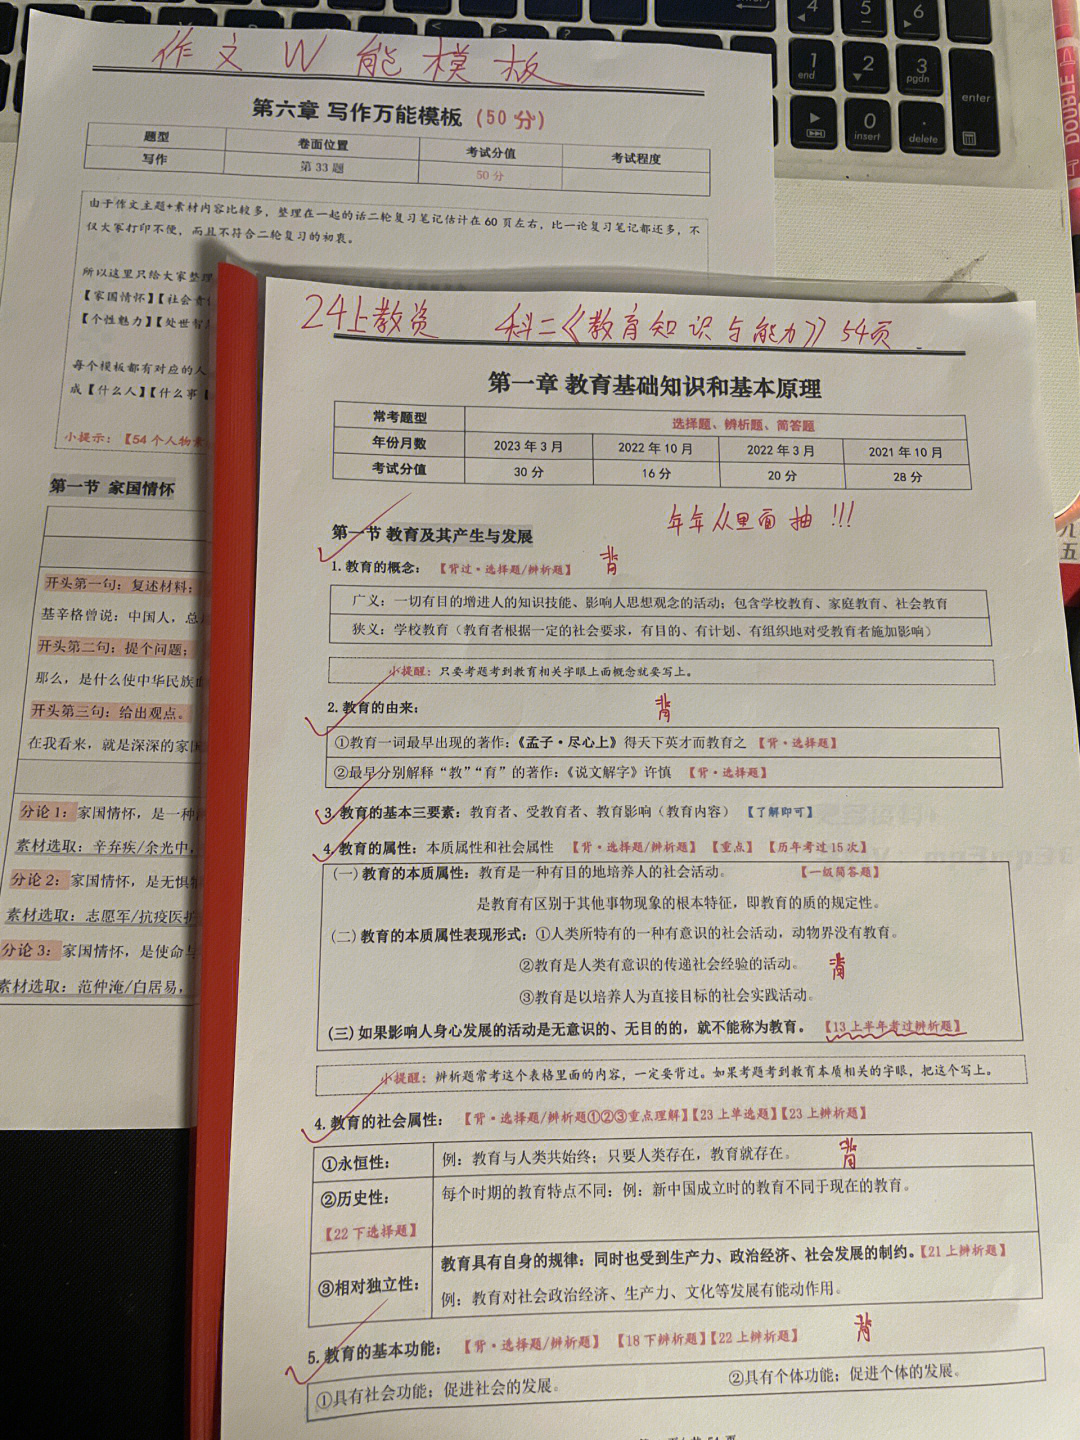 作文W能模板
第六章 写作万能模板（50分）
题型 卷面位置 考试分值 考试程度
写作 第33题 50分
由于作文主题+素材内容比较多，整理在一起的话二轮复习笔记估计在60页左右，比一论复习笔记都还多，不
仅大家打印不便，而且不符合二轮复习的初衷。
所以这里只给大家整理
【家国情怀】【社会责
【个性魅力】【处世智
每个模板都有对应的人
成【什么人】【什么事
小提示：【54个人物素
第一节 家国情怀
开头第一句：复述材料；
基辛格曾说：中国人，总
开头第二句：提个问题；
那么，是什么使中华民族
开头第三句：给出观点。
在我看来，就是深深的家国
分论1：家国情怀，是一种
素材选取：辛弃疾/余光中，
分论2：家国情怀，是无惧
素材选取：志愿军/抗疫医护
分论3：家国情怀，是使命与
素材选取：范仲淹/白居易，
24上教资 科二《教育知识与能力》54页
第一章 教育基础知识和基本原理
常考题型 选择题、辨析题、简答题
年份月数 2023年3月 2022年10月 2022年3月 2021年10月
考试分值 30分 16分 20分 28分
年年从里面抽!!!
第一节 教育及其产生与发展
1.教育的概念：【背过·选择题/辨析题】 背
广义：一切有目的增进人的知识技能、影响人思想观念的活动；包含学校教育、家庭教育、社会教育
狭义：学校教育（教育者根据一定的社会要求，有目的、有计划、有组织地对受教育者施加影响）
小提醒：只要考题考到教育相关字眼上面概念就要写上。
2.教育的由来： 背
①教育一词最早出现的著作：《孟子·尽心上》得天下英才而教育之 【背·选择题】
②最早分别解释“教”“育”的著作：《说文解字》许慎 【背·选择题】
3.教育的基本三要素：教育者、受教育者、教育影响（教育内容） 【了解即可】
4.教育的属性：本质属性和社会属性 【背·选择题/辨析题】【重点】【历年考过15次】
(一)教育的本质属性：教育是一种有目的地培养人的社会活动。 【一级简答题】
是教育有区别于其他事物现象的根本特征，即教育的质的规定性。
(二)教育的本质属性表现形式：①人类所特有的一种有意识的社会活动，动物界没有教育。
②教育是人类有意识的传递社会经验的活动。 背
③教育是以培养人为直接目标的社会实践活动。
(三)如果影响人身心发展的活动是无意识的、无目的的，就不能称为教育。 【13上半年考过辨析题】
小提醒：辨析题常考这个表格里面的内容，一定要背过。如果考题考到教育本质相关的字眼，把这个写上。
4.教育的社会属性：【背·选择题/辨析题①②③重点理解】【23上单选题】【23上辨析题】
①永恒性： 例：教育与人类共始终；只要人类存在，教育就存在。 背
②历史性： 每个时期的教育特点不同：例：新中国成立时的教育不同于现在的教育。
【22下选择题】
③相对独立性： 教育具有自身的规律：同时也受到生产力、政治经济、社会发展的制约。【21上辨析题】
例：教育对社会政治经济、生产力、文化等发展有能动作用。
5.教育的基本功能：【背·选择题/辨析题】【18下辨析题】【22上辨析题】 背
①具有社会功能；促进社会的发展。 ②具有个体功能；促进个体的发展。
4 5 6
1 end 2 3 pgdn
enter
0 insert . delete
DOUBLE
九
五